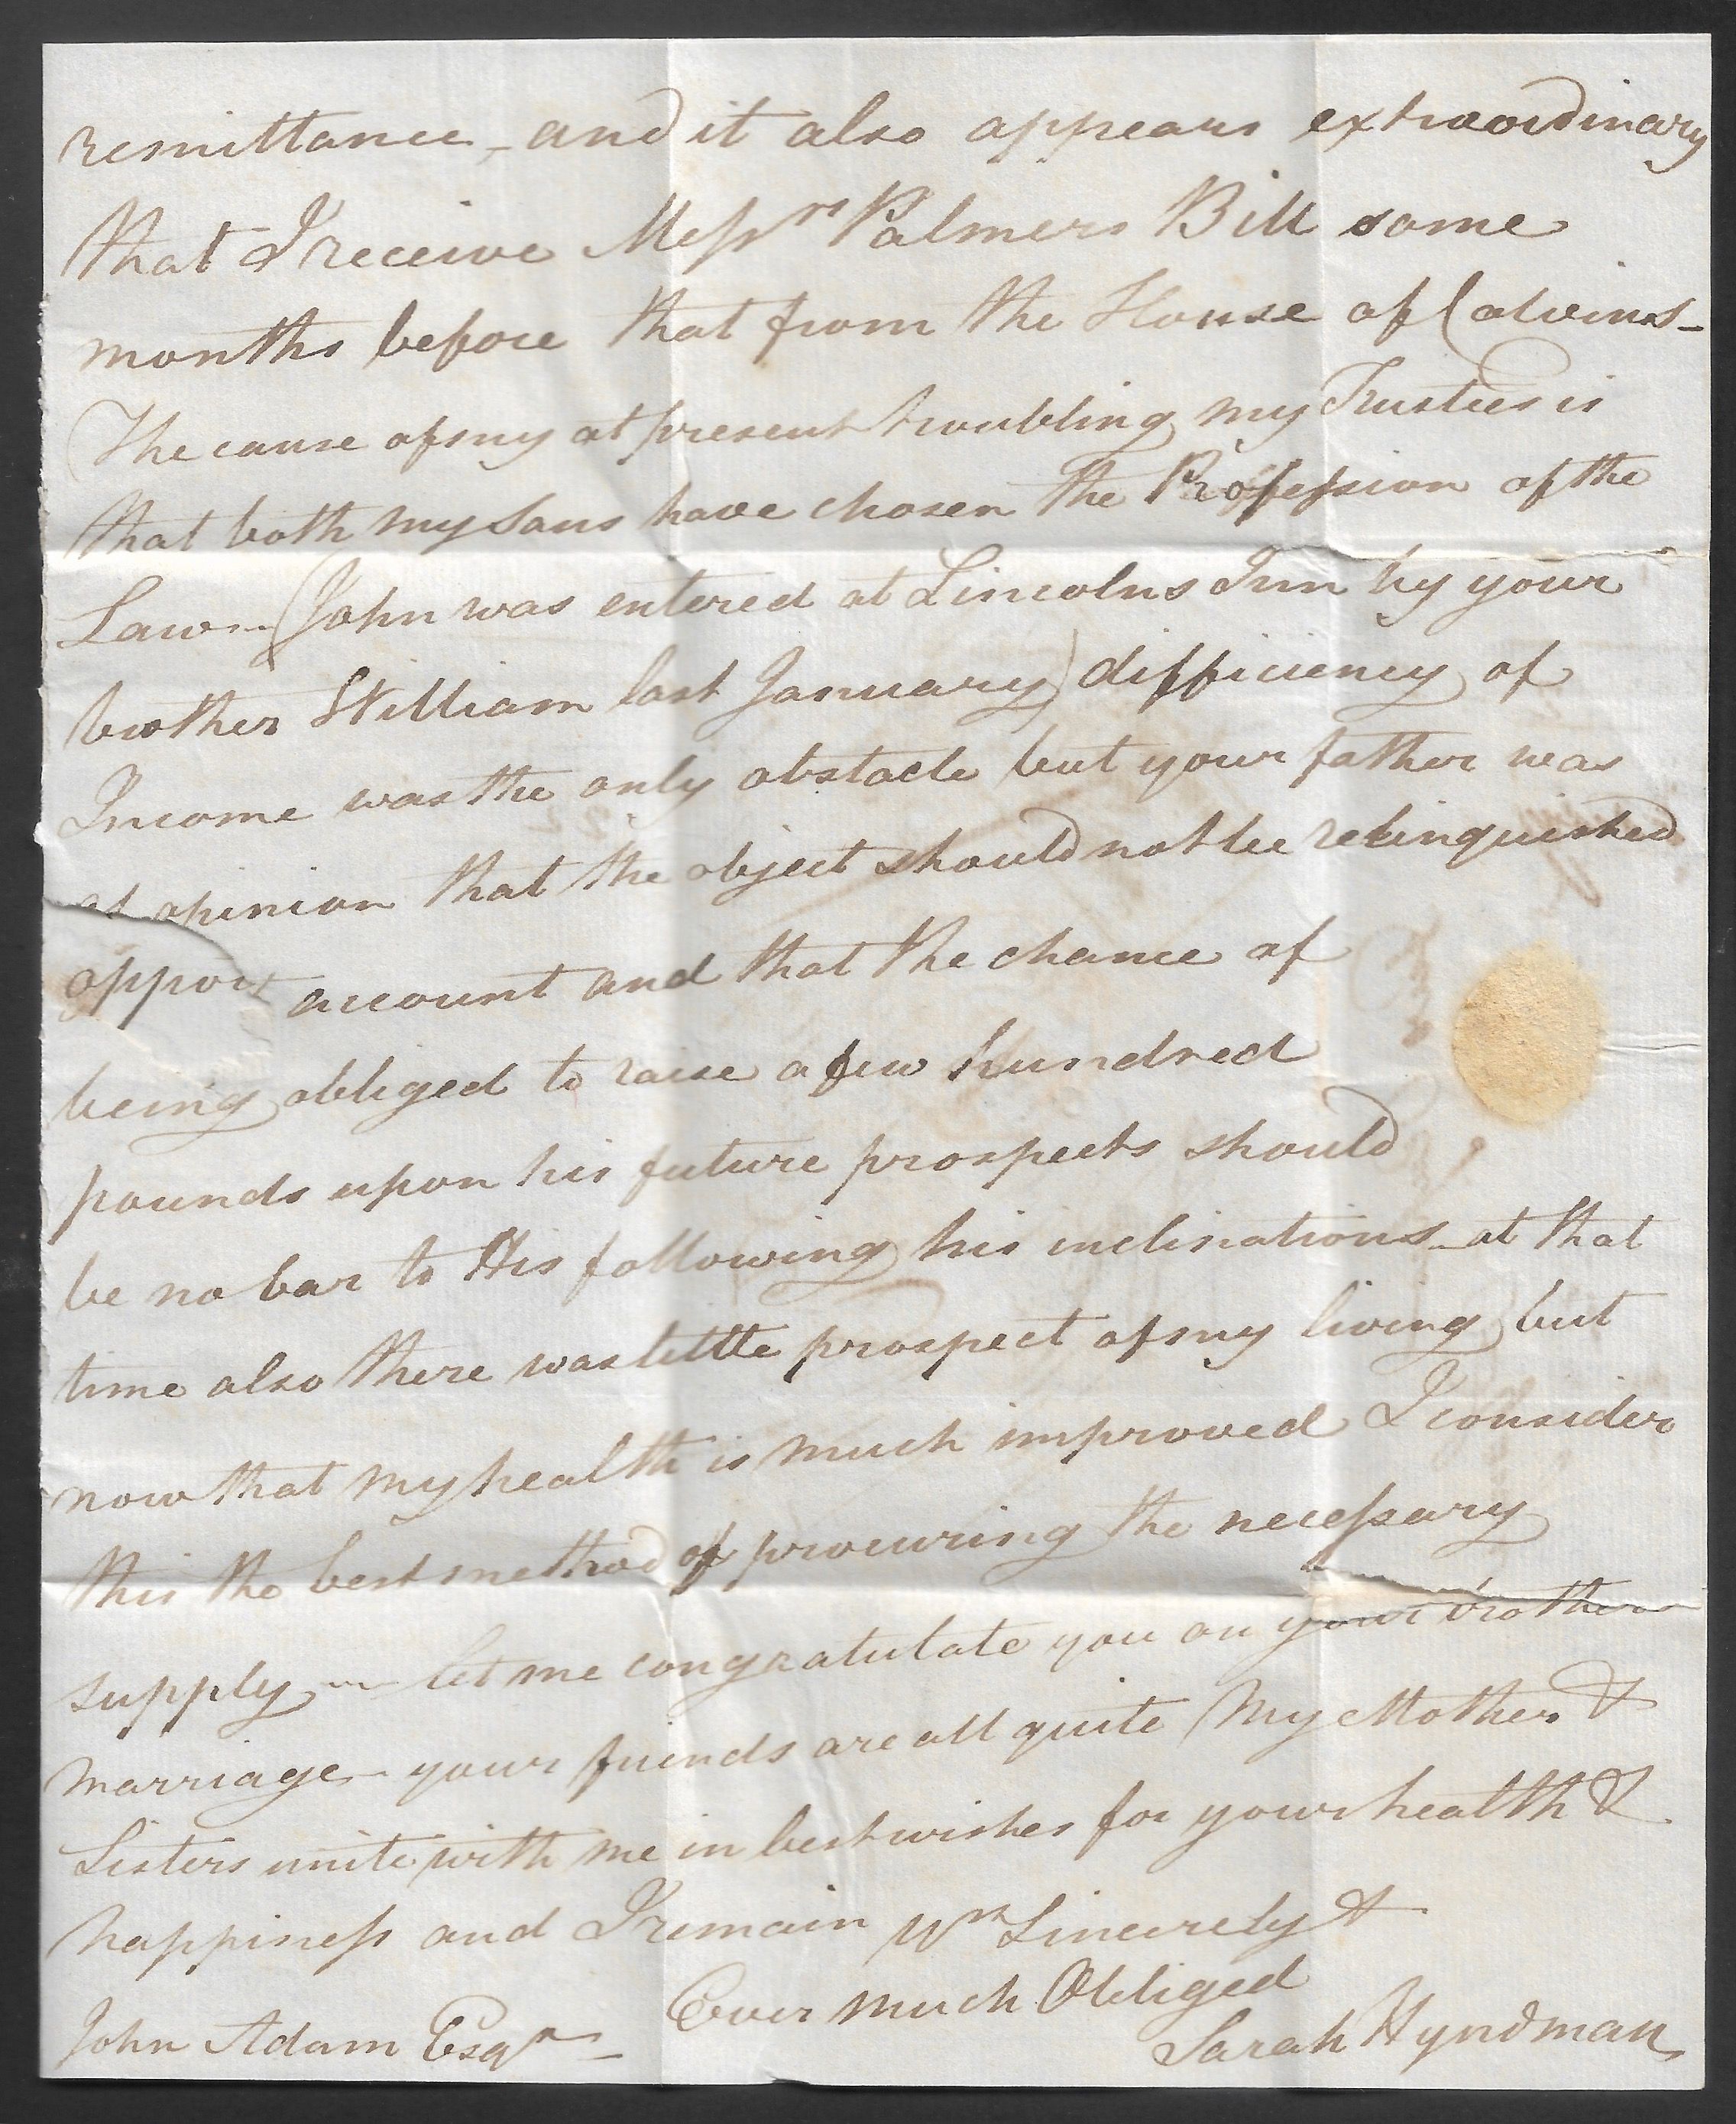 remittance - and it also appears extraordinary
that I receive Messrs Palmers Bill some
months before that from the House of Calvins -
The cause of my at present troubling my Trustees is
that both my Sons have chosen the Profession of the
Law - (John was entered at Lincolns Inn by your
brother William last January) difficiency of
Income was the only obstacle but your father was
of opinion that the object should not be relinquished
account and that the chance of
being obliged to raise a few hundred
pounds upon his future prospects should
be no bar to His following his inclinations - at that
time also there was little prospect of my living but
now that my health is much improved I consider
this the best method of procuring the necessary
supply - let me congratulate you on your brother
marriage - your friends are all quite My Mother &
Sisters unite with me in best wishes for your health &
happiness and I remain Yrs Sincerely &
Ever much Obliged
John Adam Esqr -
Sarah Hyndman